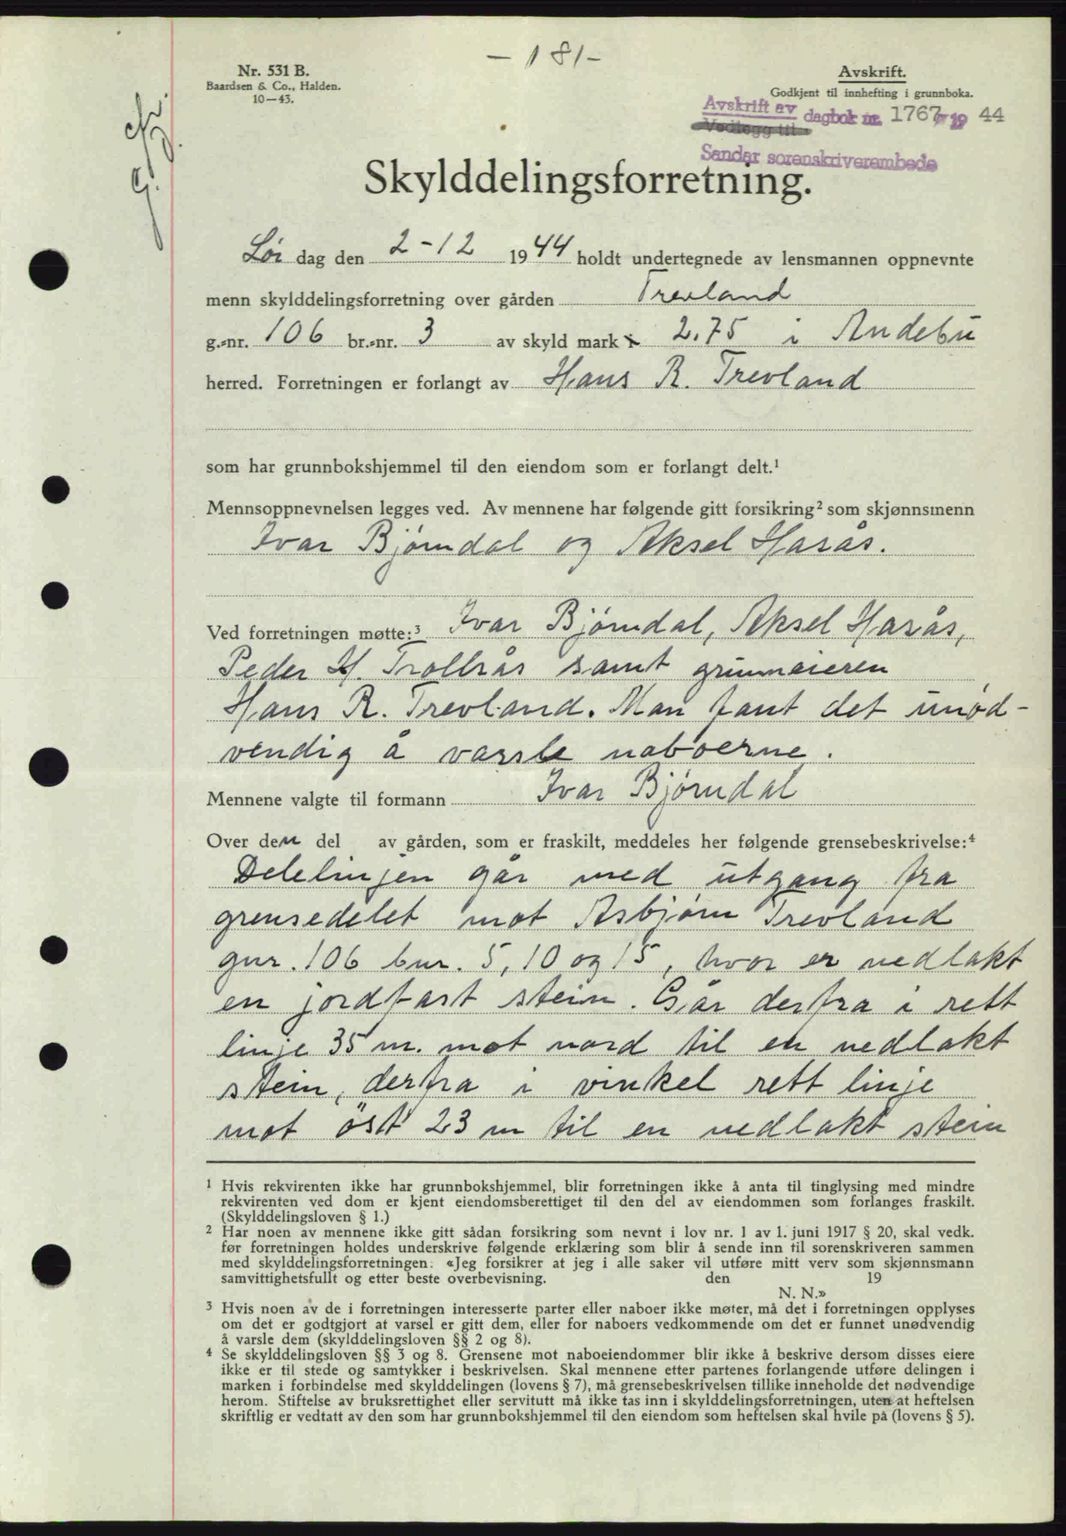 - 181 -
Nr. 531 B.
Baardsen & Co., Halden.
10-43.
Avskrift.
Godkjent til innhefting i grunnboka.
Avskrift av dagbok nr. 1767 19 44
Vedlegg til
Sandar sorenskriverembede
g. fr.
Skylddelingsforretning.
Lør dag den 2-12 1944 holdt undertegnede av lensmannen oppnevnte
menn skylddelingsforretning over gården Trevland
g.-nr. 106 br.-nr. 3 av skyld mark 2.75 i Andebu
herred. Forretningen er forlangt av Hans R. Trevland
som har grunnbokshjemmel til den eiendom som er forlangt delt.¹
Mennsoppnevnelsen legges ved. Av mennene har følgende gitt forsikring² som skjønnsmenn
Ivar Bjørndal og Aksel Hasås.
Ved forretningen møtte:³ Ivar Bjørndal, Aksel Hasås,
Peder H. Trollsås samt grunneieren
Hans R. Trevland. Man fant det unød-
vendig å varsle naboerne.
Mennene valgte til formann Ivar Bjørndal
Over den del av gården, som er fraskilt, meddeles her følgende grensebeskrivelse:⁴
Delelinjen går med utgang fra
grensedelet mot Asbjørn Trevland
gnr. 106 bnr. 5, 10 og 15, hvor er nedlakt
en jordfast stein. Går derfra i rett
linje 35 m. mot nord til en nedlakt
stein, derfra i vinkel rett linje
mot öst 23 m til en nedlakt stein
¹ Hvis rekvirenten ikke har grunnbokshjemmel, blir forretningen ikke å anta til tinglysing med mindre
rekvirenten ved dom er kjent eiendomsberettiget til den del av eiendommen som forlanges fraskilt.
(Skylddelingsloven § 1.)
² Har noen av mennene ikke gitt sådan forsikring som nevnt i lov nr. 1 av 1. juni 1917 § 20, skal vedk.
før forretningen holdes underskrive følgende erklæring som blir å sende inn til sorenskriveren sammen
med skylddelingsforretningen: «Jeg forsikrer at jeg i alle saker vil utføre mitt verv som skjønnsmann
samvittighetsfullt og etter beste overbevisning. den 19
N. N.»
³ Hvis noen av de i forretningen interesserte parter eller naboer ikke møter, må det i forretningen opplyses
om det er godtgjort at varsel er gitt dem, eller for naboers vedkommende om det er funnet unødvendig
å varsle dem (skylddelingsloven §§ 2 og 8).
⁴ Se skylddelingsloven §§ 3 og 8. Grensene mot naboeiendommer blir ikke å beskrive dersom disses eiere
ikke er til stede og samtykker i beskrivelsen. Skal mennene etter partenes forlangende utføre delingen i
marken i forbindelse med skylddelingen (lovens § 7), må grensebeskrivelsen tillike inneholde det nødvendige
herom. Stiftelse av bruksrettighet eller servitutt må ikke tas inn i skylddelingsforretningen, uten at heftelsen
skriftlig er vedtatt av den som har grunnbokshjemmel til den eiendom som heftelsen skal hvile på (lovens § 5).